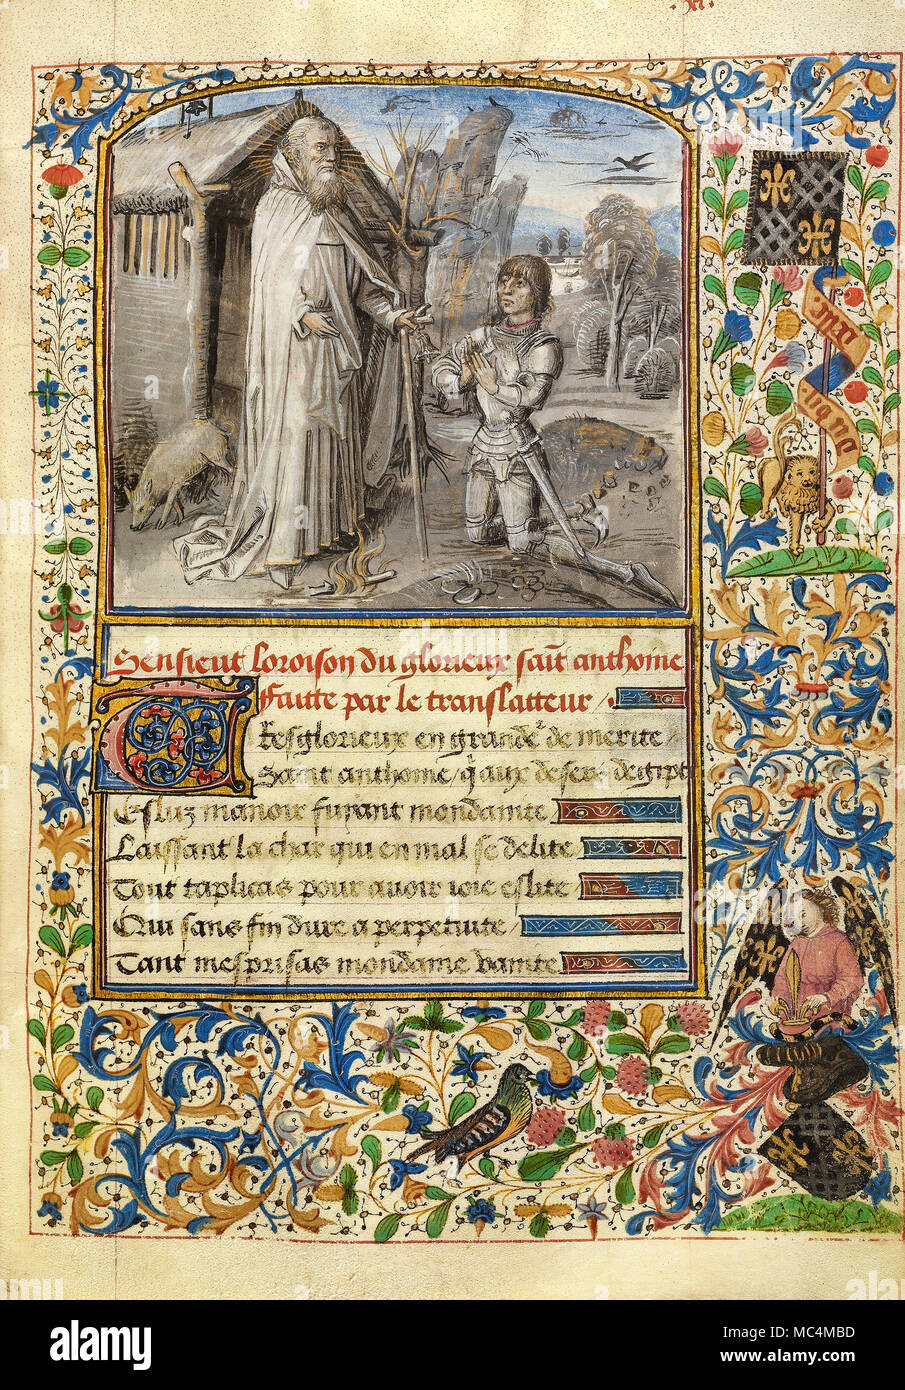 Sensieut loroison du glorieux saīt anthoine
faitte par le translatteur
Tresglorieux en grande de merite
Saint anthoine / q aux desers degipt
Es luz manoir fuyant mondanite
Laissant la char qui en mal se delite
Tout taplicas pour auoir ioie eslite
Qui sans fin dure a perpetuite
Tant mesprisas mondaine vanite
alamy
Image ID: MC4MBD
www.alamy.com